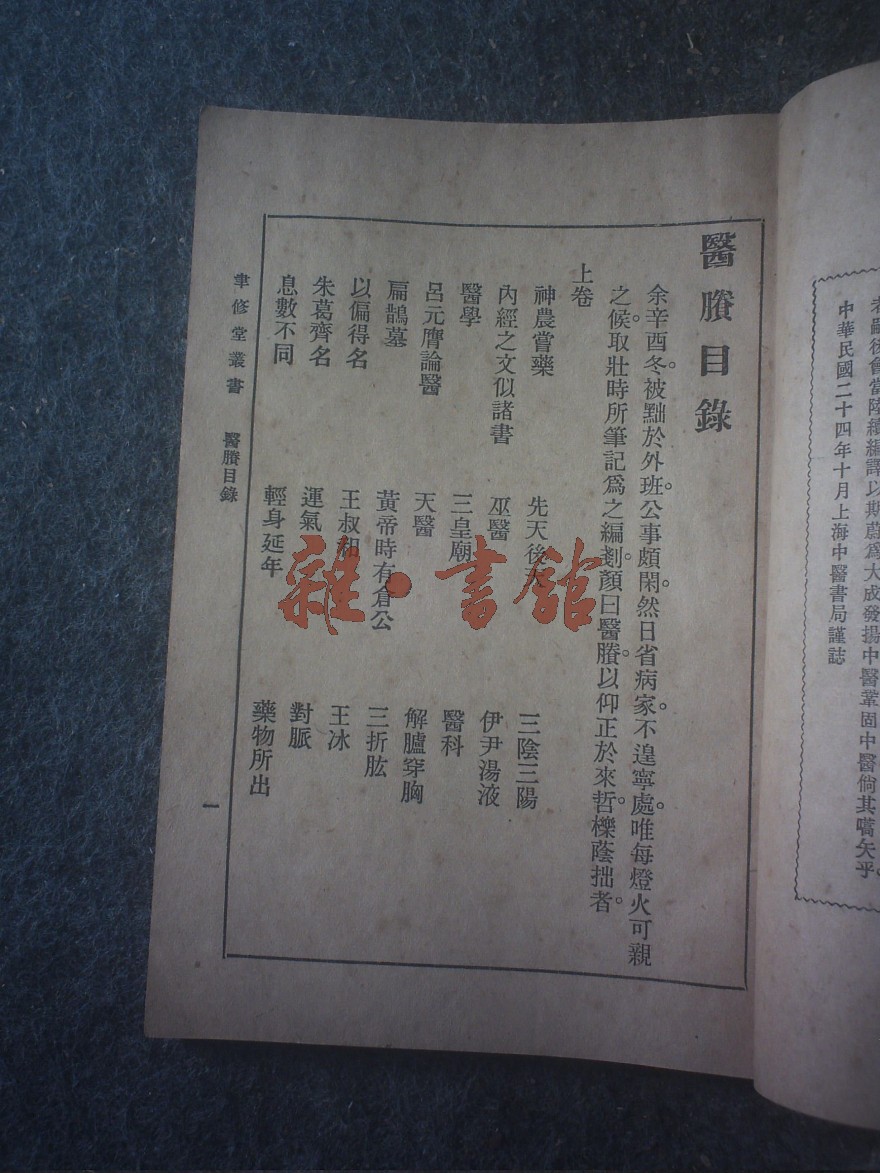 者嗣後會當陸續編譯以期蔚爲大成發揚中醫鞏固中醫倘其嚆矢乎。
中華民國二十四年十月上海中醫書局謹誌
醫賸目錄
余辛酉冬。被黜於外班。公事頗閑。然日省病家。不遑寧處。唯每燈火可親
之候。取壯時所筆記爲之編剗。顏曰醫賸。以仰正於來哲。櫟蔭拙者。
上卷
神農嘗藥 先天後天 三陰三陽
內經之文似諸書 巫醫 伊尹湯液
醫學 三皇廟 醫科
呂元膺論醫 天醫 解臚穿胸
扁鵲墓 黃帝時有倉公 三折肱
以偏得名 王叔和 王冰
朱葛齊名 運氣 對脈
息數不同 輕身延年 藥物所出
聿修堂叢書 醫賸目錄 一
雜·書館